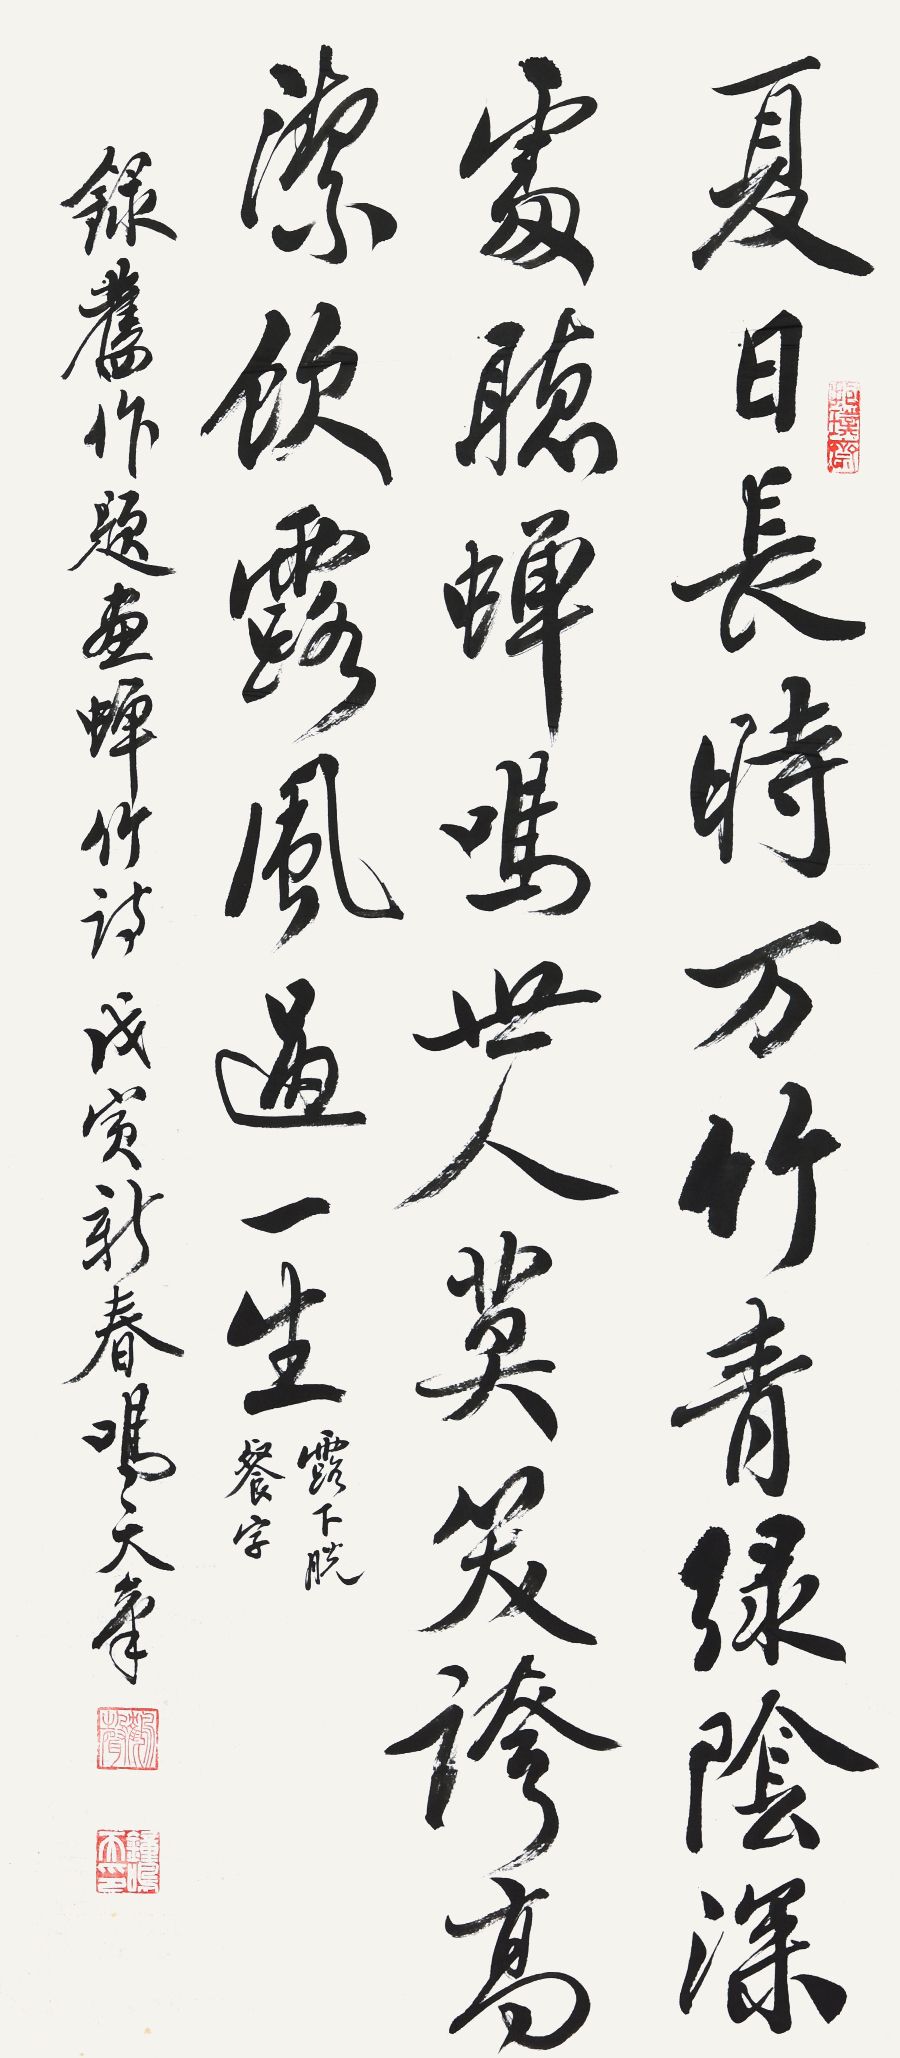 夏日長時万竹青緑陰深
處聽蟬鳴世人莫笑誇高
潔飲露風過一生
露下脱
餐字
録舊作題画蟬竹詩戊寅新春鳴天筆